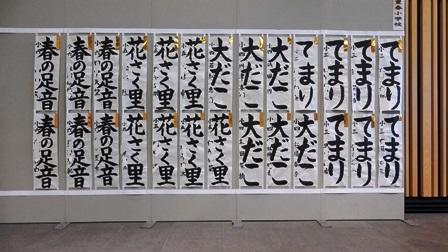 春小学校
てまり
てまり
てまり
てまり
大だこ
大だこ
大だこ
花さく里
花さく里
花さく里
春の足音
春の足音
春の足音
てまり
てまり
てまり
大だこ
大だこ
大だこ
花さく里
花さく里
花さく里
花さく里
春の足音
春の足音
春の足音